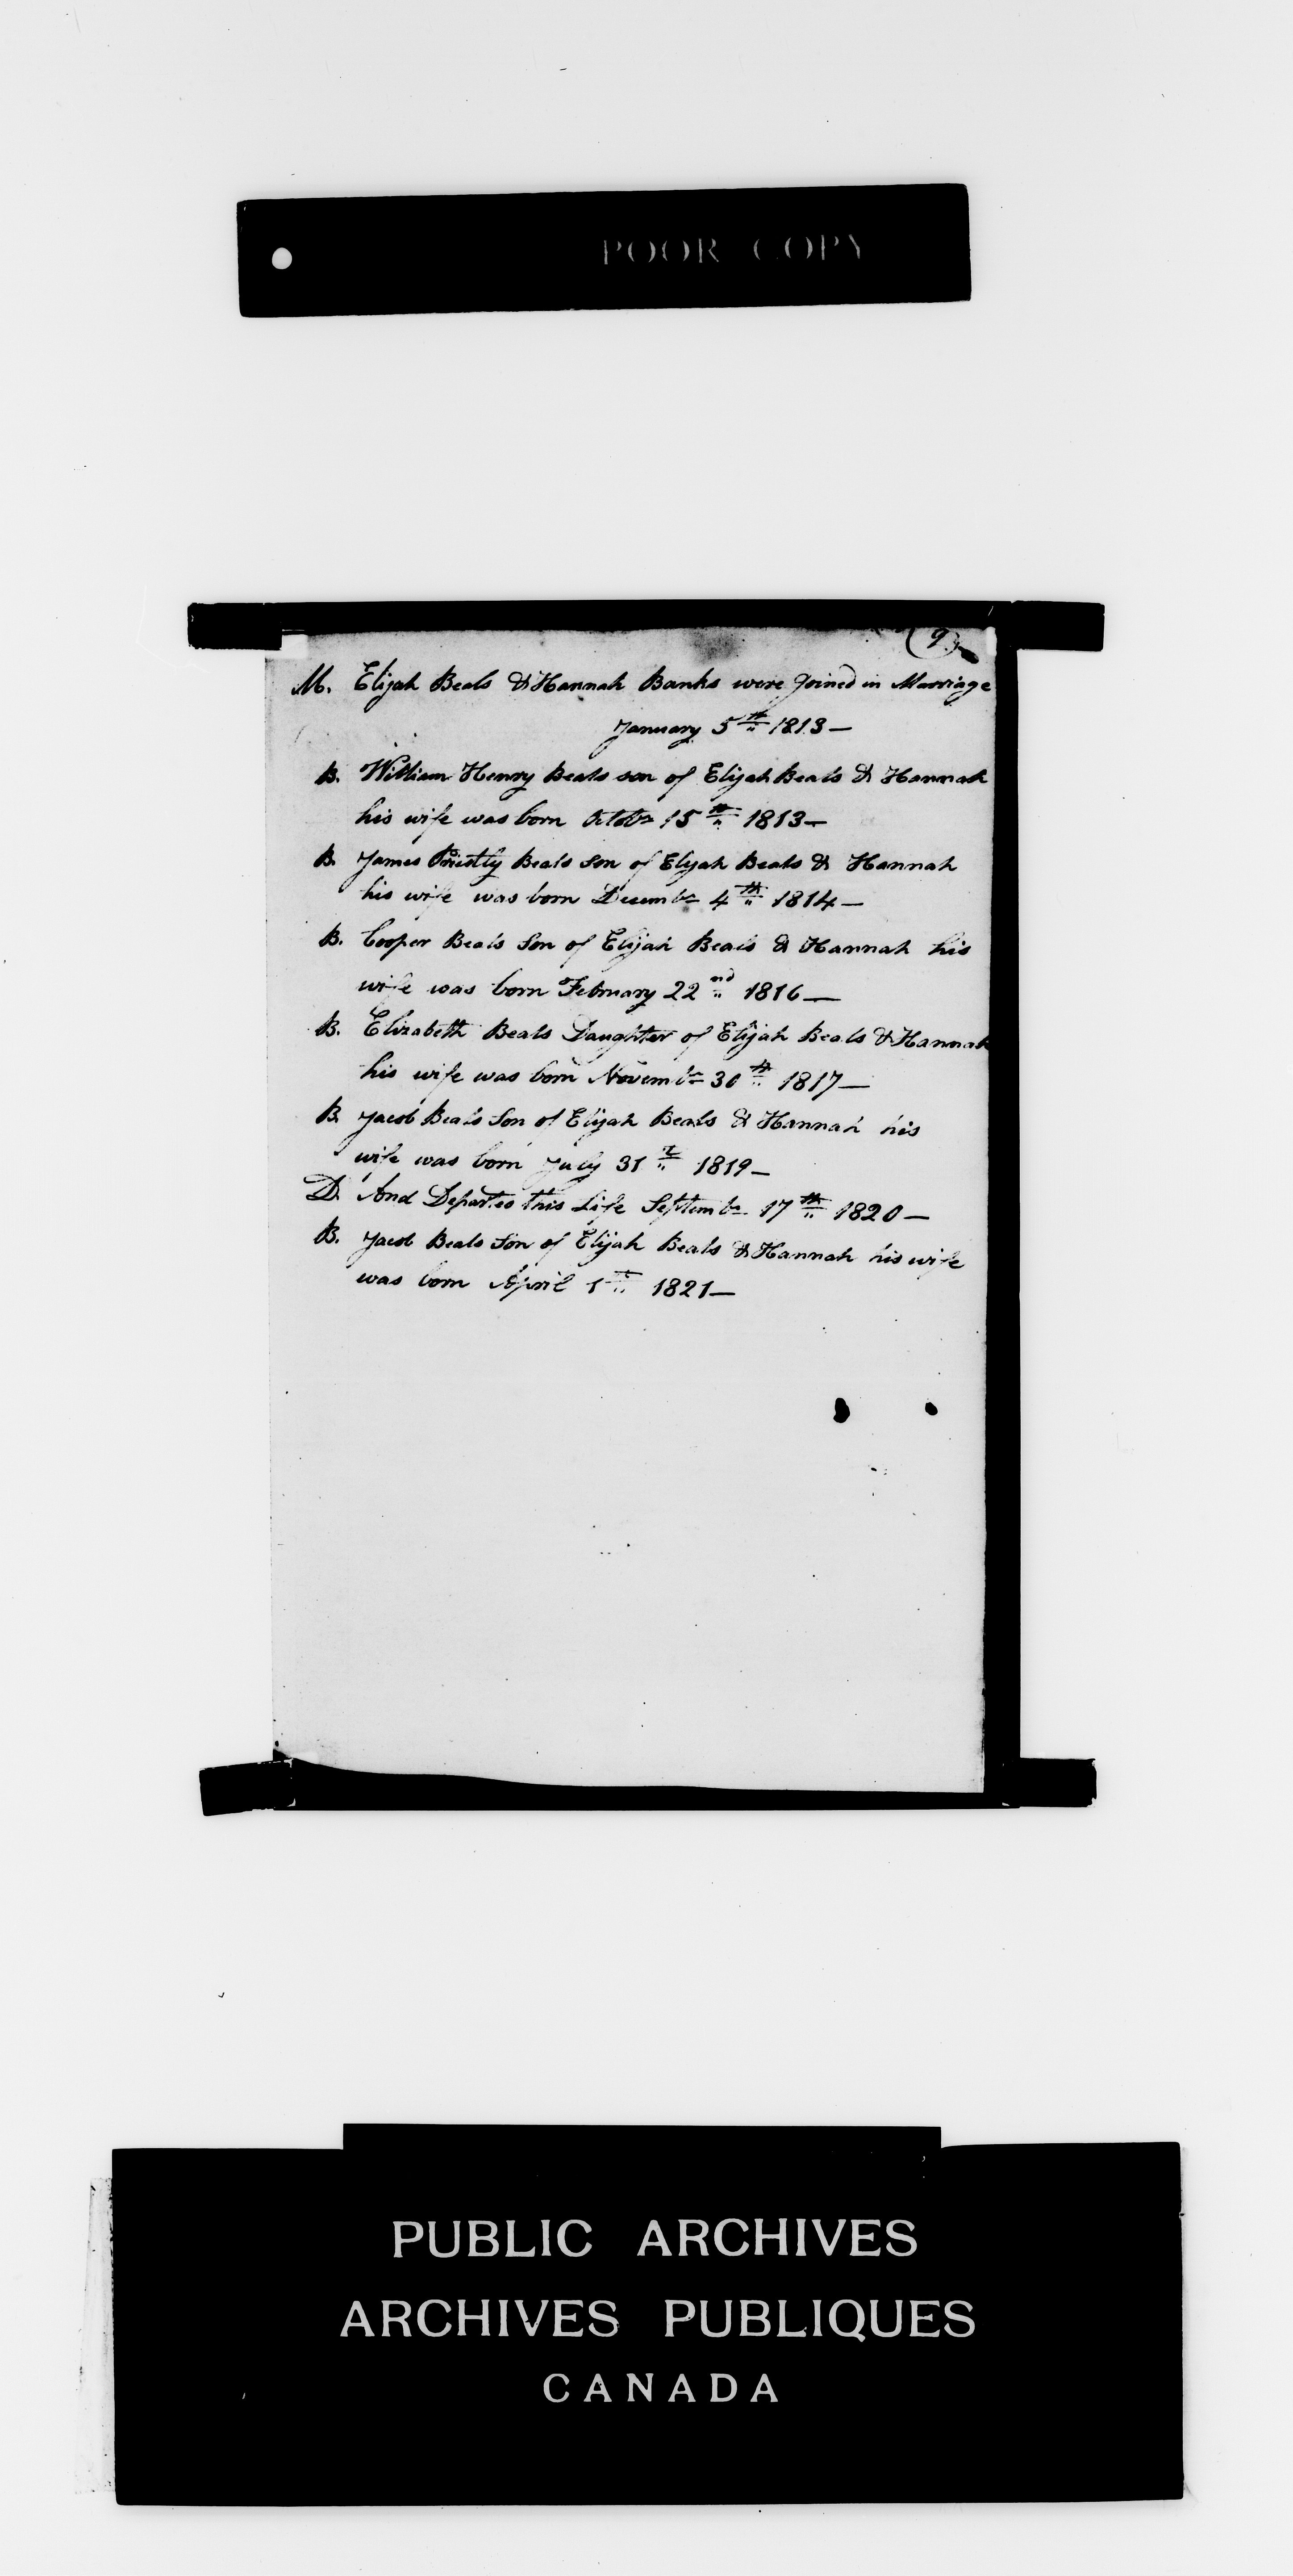 POOR COPY
(9)
M. Elijah Beals & Hannah Banks were Joined in Marriage
January 5th 1813—
B. William Henry Beals son of Elijah Beals & Hannah
his wife was born Octobr 15th 1813—
B. James Priestly Beals Son of Elijah Beals & Hannah
his wife was born Decembr 4th 1814—
B. Cooper Beals Son of Elijah Beals & Hannah his
wife was born February 22nd 1816—
B. Elizabeth Beals Daughter of Elijah Beals & Hannah
his wife was born Novembr 30th 1817—
B. Jacob Beals Son of Elijah Beals & Hannah his
wife was born July 31 1819—
D. And Departed this Life Septembr 17th 1820—
B. Jacob Beals Son of Elijah Beals & Hannah his wife
was born April 1 1821—
PUBLIC ARCHIVES
ARCHIVES PUBLIQUES
CANADA